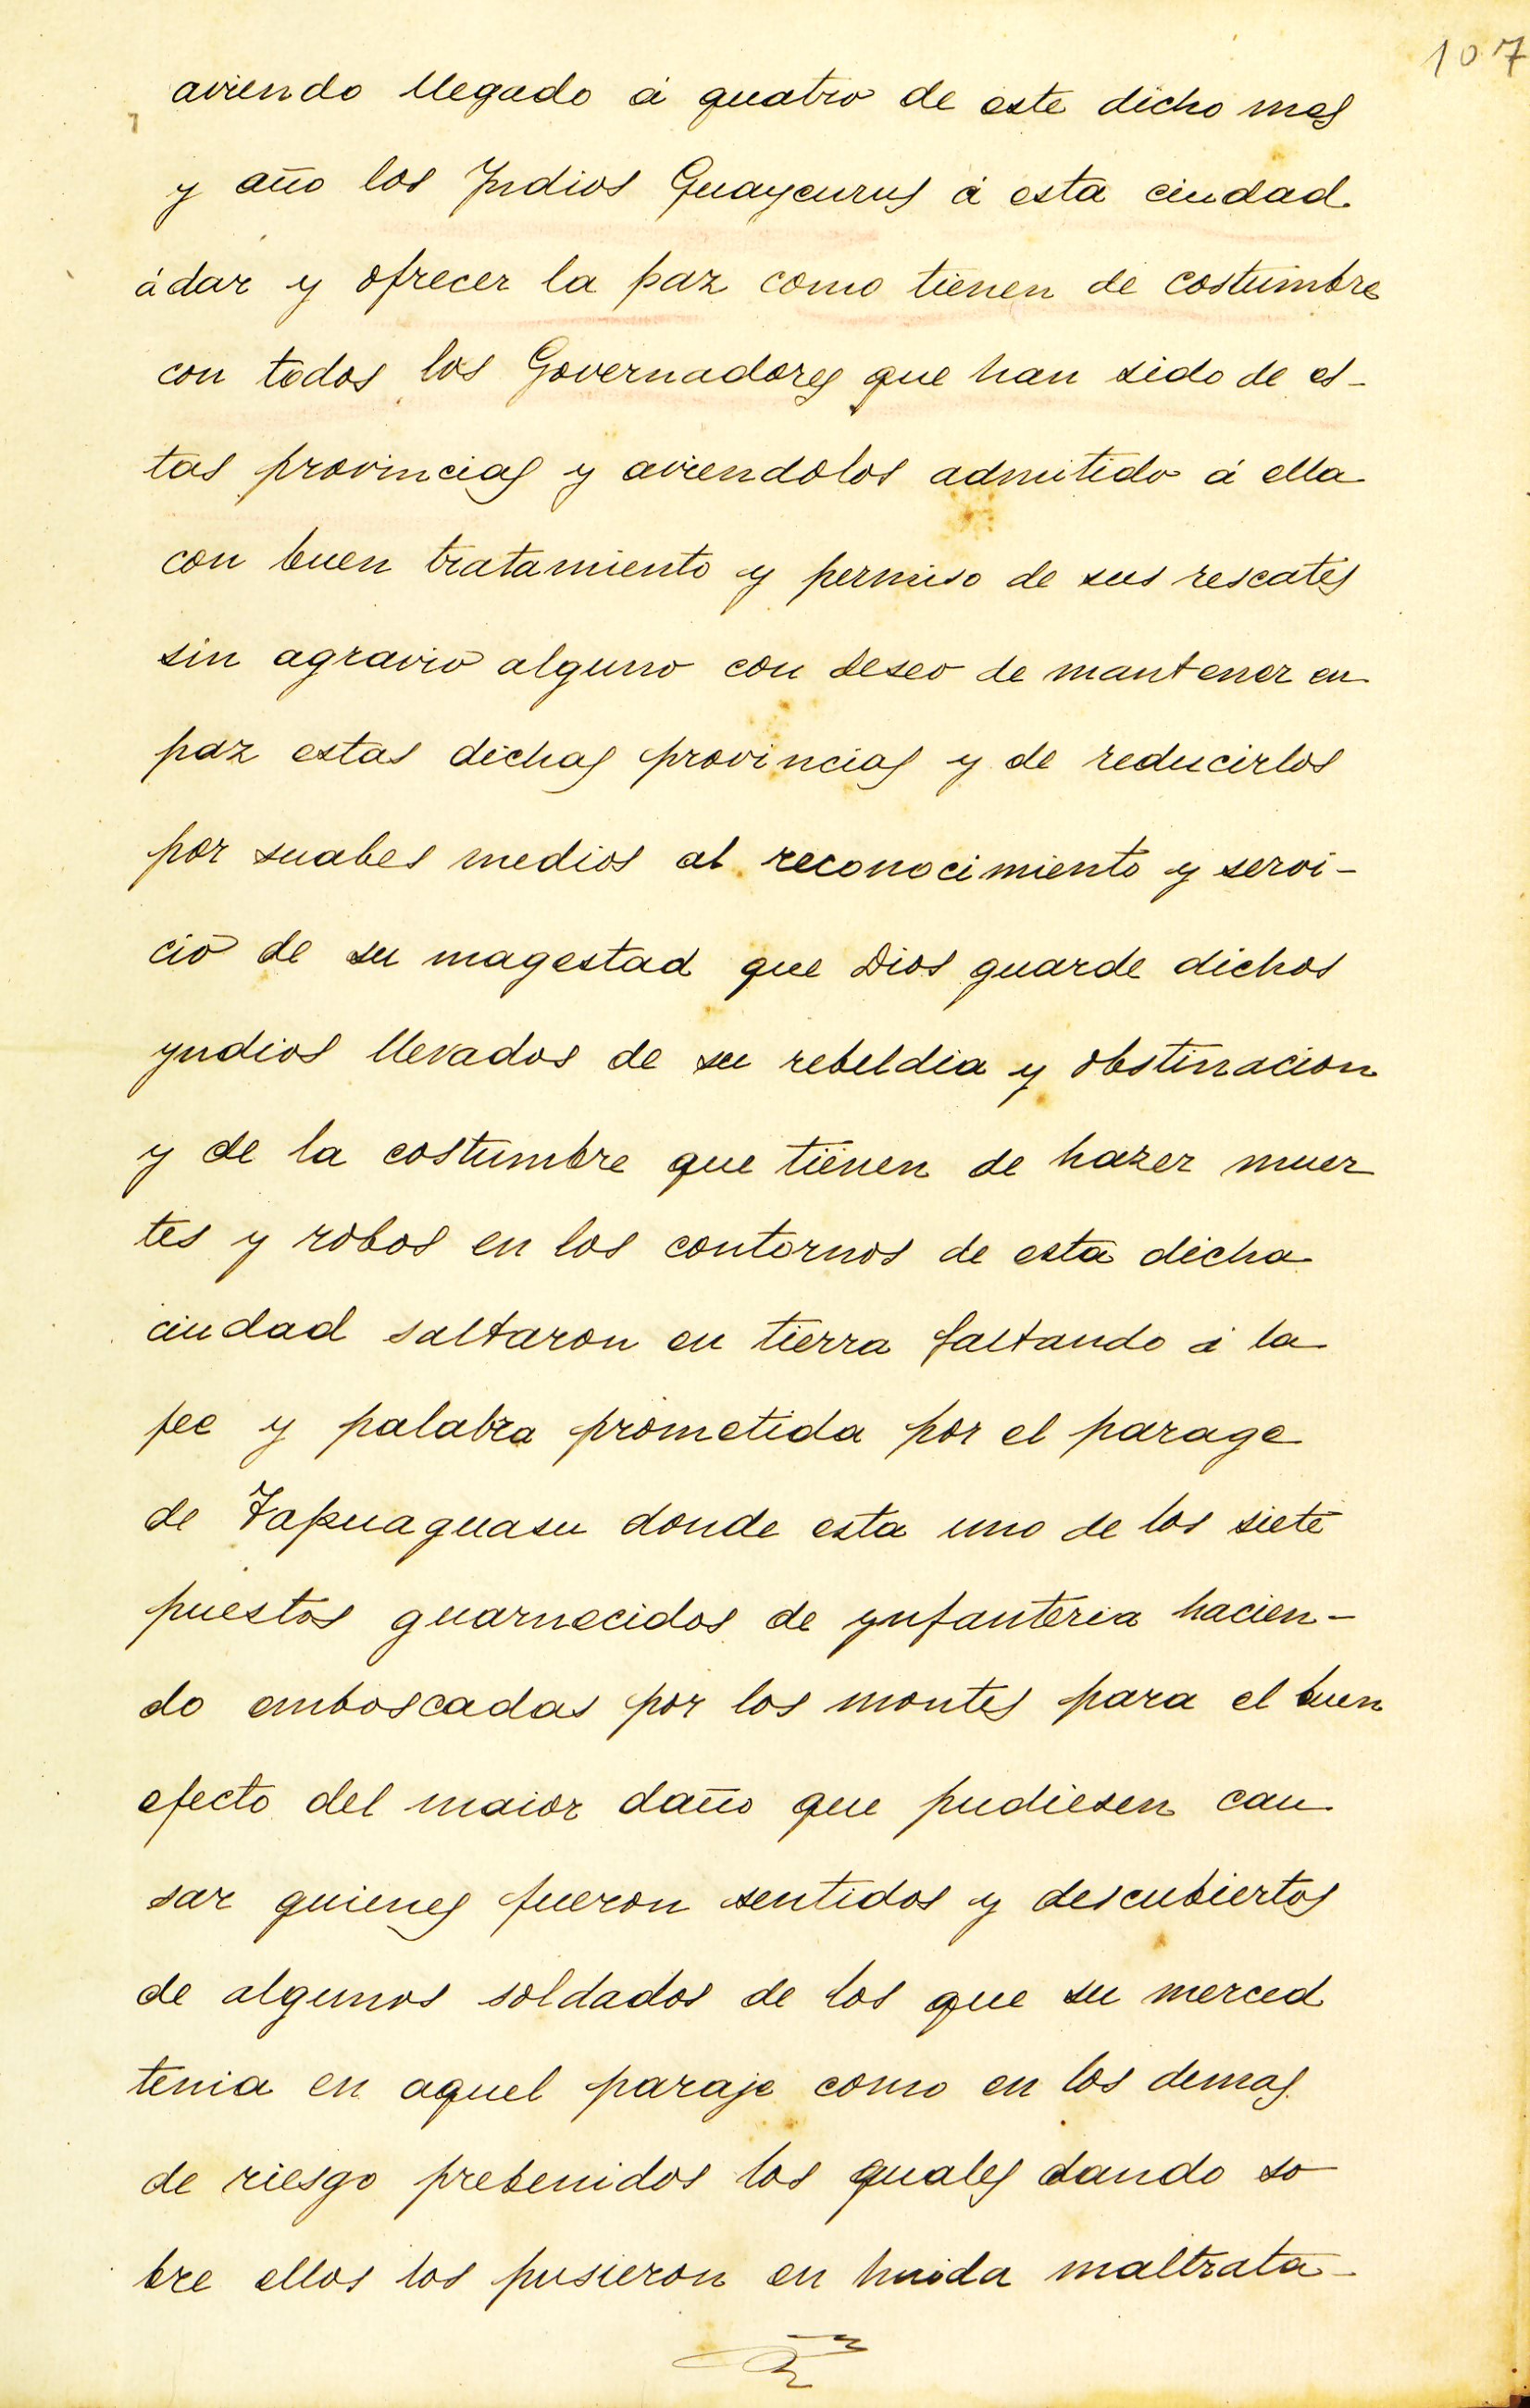 107
aviendo llegado á quatro de este dicho mes
y año los Yndios Guaycurus á esta ciudad
á dar y ofrecer la paz como tienen de costumbre
con todos los Governadores que han sido de es-
tas provincias y aviendolos admitido á ella
con buen tratamiento y permiso de sus rescates
sin agravio alguno con deseo de mantener en
paz estas dichas provincias y de reducirlos
por suabes medios al reconocimiento y servi-
cio de su magestad que Dios guarde dichos
yndios llevados de su rebeldia y obstinacion
y de la costumbre que tienen de hazer muer
tes y robos en los contornos de esta dicha
ciudad saltaron en tierra faltando á la
fee y palabra prometida por el parage
de Tapuaguasu donde esta uno de los siete
puestos guarnecidos de ynfanteria hacien-
do emboscadas por los montes para el buen
efecto del maior daño que pudiesen cau
sar quienes fueron sentidos y descubiertos
de algunos soldados de los que su merced
tenia en aquel paraje como en los demas
de riesgo prebenidos los quales dando so
bre ellos los pusieron en huida maltrata-